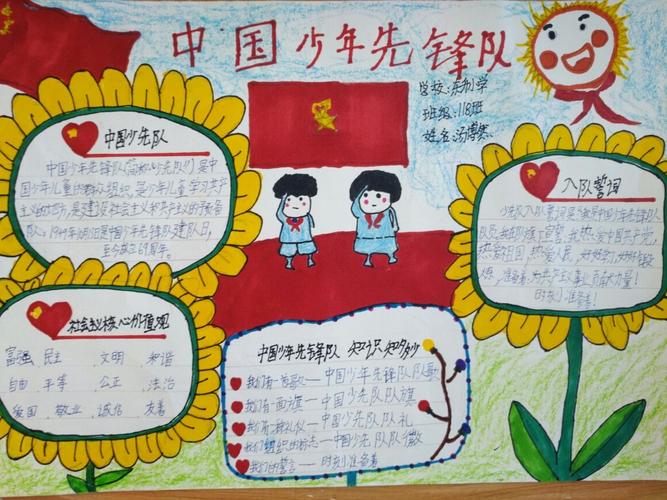 中国少年先锋队
学校:东制学
班级:118班
姓名:汤博寒
中国少先队
中国少年先锋队(简称"少先队")是中
国少年儿童的群众组织,是少年儿童学习共产
主义的地方,是建设社会主义和共产主义的预备
队。1949年10月13日是中国少年先锋队建队日,
至今成立69周年。
入队誓词
少先队入队誓词是:我是中国少年先锋队
队员,我在队旗下宣誓:我热爱中国共产党,
热爱祖国,热爱人民,好好学习,好好锻
准备着:为共产主义事业贡献力量!
时刻准备着!
社会主义核心价值观
富强 民主 文明 和谐
自由 平等 公正 法治
爱国 敬业 诚信 友善
中国少年先锋队 知识知多少
我们有一首歌——中国少年先锋队队歌
我们有一面旗——中国少先队队旗
我们有一种礼仪——中国少先队队礼
我们组织的标志——中国少先队队徽
我们的誓言——时刻准备着